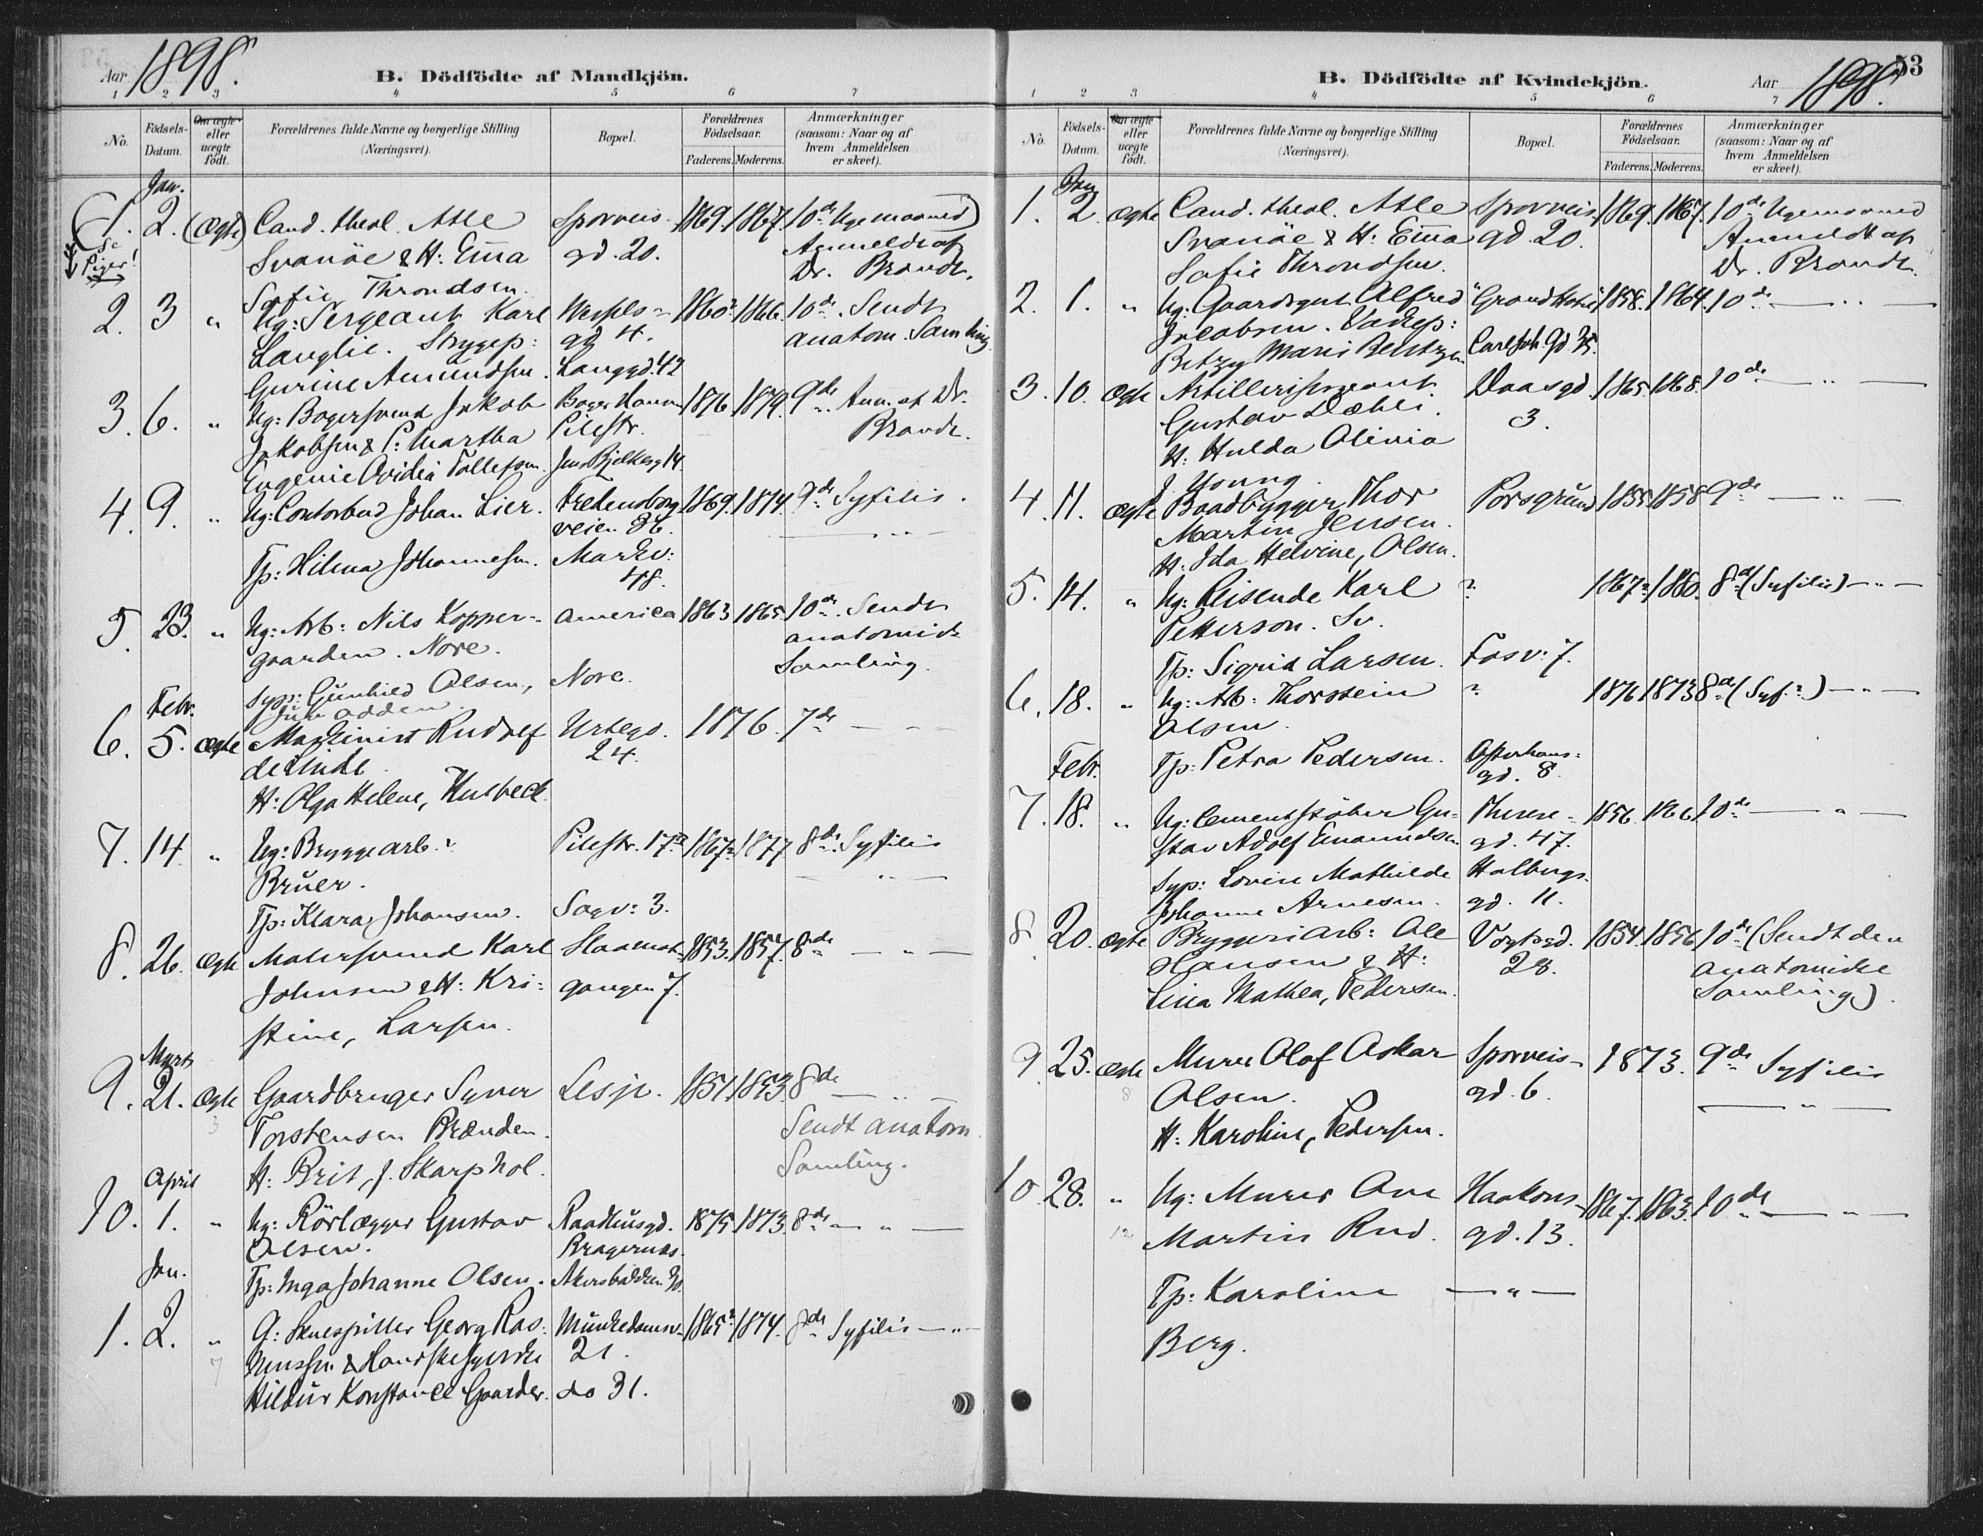 Aar 1898.
B. Dödfödte af Mandkjön.
1 2 3 4 5 6 7
No.
Födsels-
Datum.
Om ægte
eller
uægte
födt.
Forældrenes fulde Navne og borgerlige Stilling
(Næringsvei).
Bopæl.
Forældrenes
Födselsaar.
Faderens. Moderens.
Anmærkninger
(saasom: Naar og af
hvem Anmeldelsen
er skeet).
Jan.
(1. 2. (ægte) Cand. theol. Atle Sporveis- 1869. 1867. 10de Ugemaaned)
Se
Piger!
Svanöe & H: Emma gd. 20. Anmeldt af
Sofie Throndsen. Dr. Brandt.
2. 3 " Ug: Sergeant Karl 1860? 1866. 10de Sendt
Langlie. Strygep: gd 4. anatom. Samling
Gurine Amundsen. Langgd. 42
3. 6. " Ug: Bagersvend Jakob 1876 1879. 9de Anm. af Dr.
Jakobsen & P: Martha Pilestr. Brandt.
Eugenie Ovidia Tollefsen. Jens Bjelkesg 14
4. 9. " Ug: Contorbud Johan Lier. Fredensborg- 1869. 1874. 9de Syfilis.
veien 36. — " —
Tp: Hilma Johannesen. Markv:
48.
5. 23. " Ug: Arb: Nils Kopper- America 1863 1865. 10de Sendt
gaarden. Nore. anatomisk
Samling.
Syp: Gunhild Olsen, Nore.
Febr.
6. 5. ægte Maskinist Rudolf Urtegd. 1876. 7de — " —
24.
H: Olga Helene,
7. 14. " Ug: Bryggearb. ? Pilestr. 17 1867? 1877 8de Syfilis
Bruer. — " —
Tp: Klara Johansen. Sagv: 3.
8. 26. ægte Malersvend Karl 1853. 1857. 8de — " —
Johnsen & H: Kri- gangen 7.
stine, Larsen.
Marts
9. 21. ægte Gaardbruger Syver Lesje. 1851. 1853 8de — " —
Torstensen Brænden. Sendt anatom.
H: Brit, f. Skarphol. Samling.
April
10. 1. " Ug: Rörlægger Gustav Raadhusgd. 1875 1873. 8de — " —
Olsen. Bragernæs.
Jan.
Tp: Inga Johanne Olsen.
1. 2. " G: Skuespiller Georg Ras- Munkedamsv. 1865? 1874. 8de Syfilis — " —
7
mussen & Handskesyerske 21.
Hildur Konstance Gaarder. do 31.
53
B. Dödfödte af Kvindekjön.
Aar 1898.
1 2 3 4 5 6 7
No.
Födsels-
Datum.
Om ægte
eller
uægte
födt.
Forældrenes fulde Navne og borgerlige Stilling
(Næringsvei).
Bopæl.
Forældrenes
Födselsaar.
Faderens. Moderens.
Anmærkninger
(saasom: Naar og af
hvem Anmeldelsen
er skeet).
Jan.
1. 2 ægte Cand. theol. Atle Sporveis- 1869. 1867. 10de Ugemaaned
Svanöe & H: Emma gd. 20. Anmeldt af
Sofie Throndsen. Dr. Brandt.
2. 1. " Ug: Gaardsgut Alfred "Grand Hotel" 1858. 1864. 10de — " —
Jacobsen. Vaskep: Carl Joh. Gd 35.
Betzy Marie Berntzen.
3. 10. ægte Artillerisergeant Daasgd. 1865. 1868. 10de — " —
Gustav Dæhli. 3.
H: Hulda Olivia
f. Young.
4. 11. ægte Baadbygger Thor Porsgrund 1855 1858 9de — " —
Martin Jensen.
H. Ida Helvine, Olsen.
5. 14. " Ug: Reisende Karl ? 1867? 1880. 8de (Syfilis) — " —
Petterson. Sv.
Tp: Sigrid Larsen. Fosv: 7.
6. 18. " Ug: Arb: Thorstein ? 1876 1873 8de (Syf.?) — " —
Olsen.
Febr.
Tp: Petra Pedersen. Osterhaus-
gd. 8.
7. 18. " Ug: Cementstöber Gu- Therese- 1856. 1866 10de — " —
stav Adolf Emanuelsen gd. 47.
Syp: Lovise Mathilde Holbergs-
Johanne Arnesen. gd. 11.
8. 20. ægte Bryggeriarb: Ole Vogtsgd. 1854. 1856 10de (Sendt den
Hansen & H: 28. anatomiske
Lina Mathea, Pedersen. Samling).
9. 25. ægte Murer Olaf Oskar Sporveis- 1873. 9de Syfilis
8
Olsen. gd. 6. — " —
H: Karoline, Pedersen.
10. 28. " Ug: Murer Ove Haakons- 1867. 1863. 10de — " —
12
Martin Rud. gd. 13.
Tp: Karoline — " —
Berg.